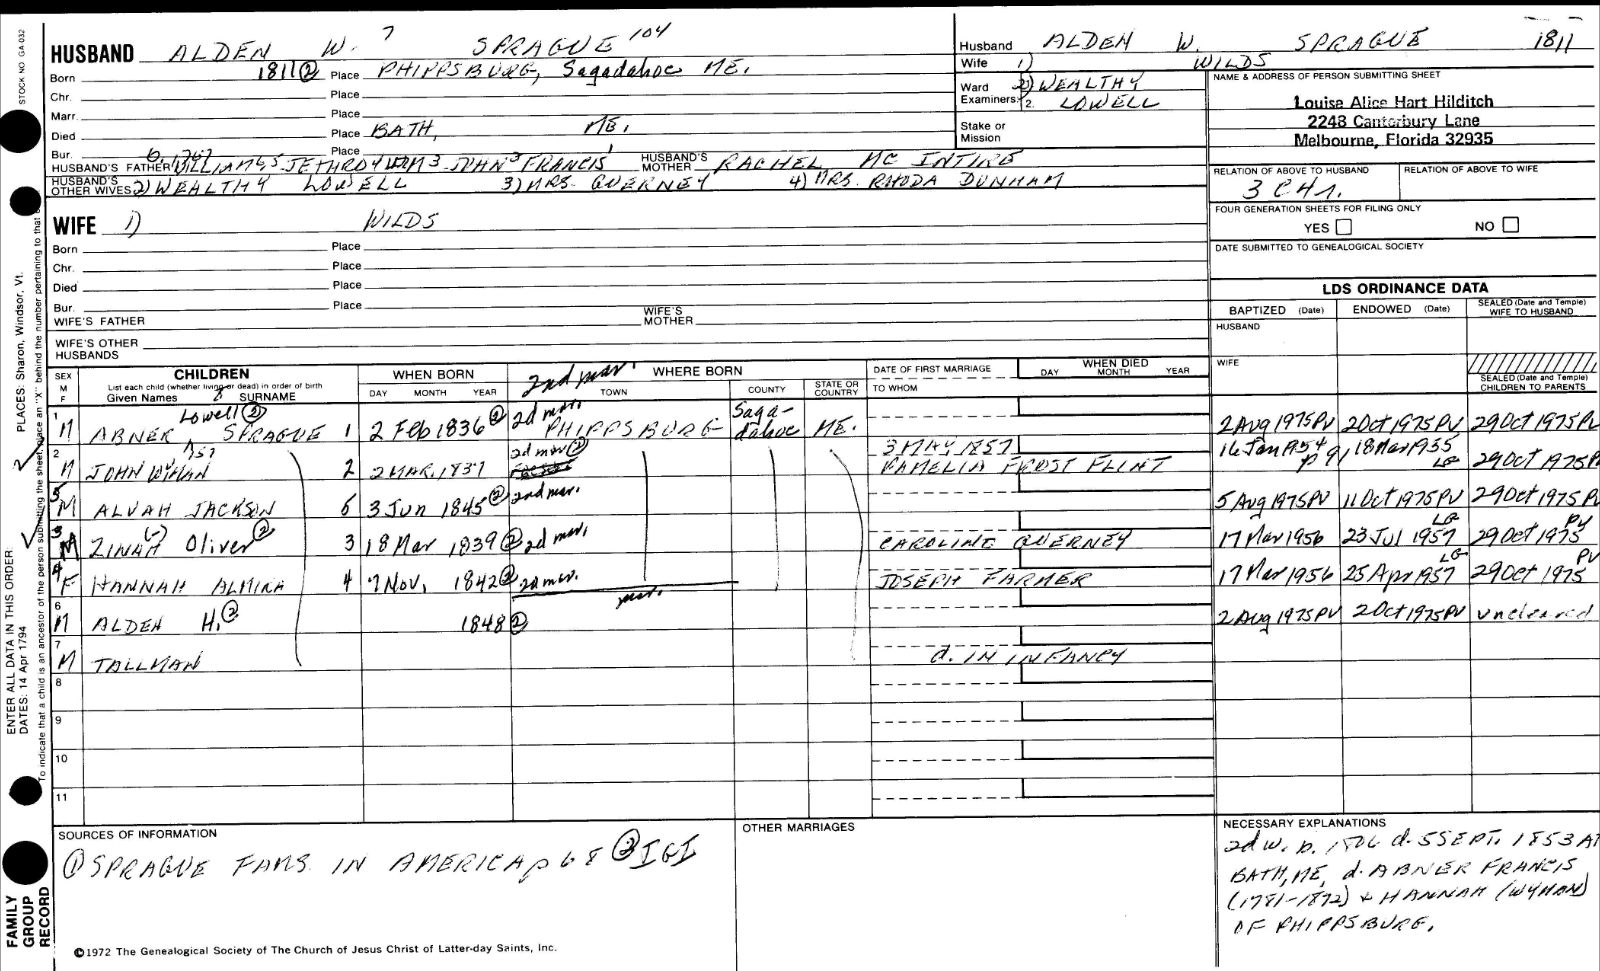 STOCK NO. GA-032
HUSBAND ALDEN W. 7 SPRAGUE 104
Born 1811② Place PHIPPSBURG, Sagadahoc ME.
Chr. Place
Marr. Place
Died Place BATH, ME.
Bur. Place
HUSBAND'S FATHER WILLIAM5 JETHRO4 WM3 JOHN FRANCIS HUSBAND'S MOTHER RACHEL MC INTIRE
HUSBAND'S OTHER WIVES 2) WEALTHY LOWELL 3) MRS. GUERNEY 4) MRS. RHODA DUNHAM
WIFE 1) WILDS
Born Place
Chr. Place
Died Place
Bur. Place
WIFE'S FATHER WIFE'S MOTHER
WIFE'S OTHER HUSBANDS
Husband ALDEN W. SPRAGUE 1811
Wife 1) WILDS
Ward 2) WEALTHY
Examiners: 2. LOWELL
Stake or Mission
NAME & ADDRESS OF PERSON SUBMITTING SHEET
Louise Alice Hart Hilditch
2248 Canterbury Lane
Melbourne, Florida 32935
RELATION OF ABOVE TO HUSBAND RELATION OF ABOVE TO WIFE
FOUR GENERATION SHEETS FOR FILING ONLY
YES NO
DATE SUBMITTED TO GENEALOGICAL SOCIETY
LDS ORDINANCE DATA
BAPTIZED (Date) ENDOWED (Date) SEALED (Date and Temple) WIFE TO HUSBAND
HUSBAND
WIFE
SEALED (Date and Temple) CHILDREN TO PARENTS
SEX M F CHILDREN WHEN BORN 2nd mar. WHERE BORN DATE OF FIRST MARRIAGE WHEN DIED
List each child (whether living or dead) in order of birth
Given Names & SURNAME DAY MONTH YEAR TOWN COUNTY STATE OR COUNTRY TO WHOM DAY MONTH YEAR
1 M ABNER Lowell② SPRAGUE 1 2 Feb 1836② 2d mar. PHIPPSBURG Sagadahoc ME. 2 Aug 1975 PV 2 Oct 1975 PV 29 Oct 1975 PV
2 M JOHN WYMAN 2 2 MAR. 1837 2d mar② 3 MAY 1857 PAMELIA FROST FLINT 16 Jan 1954 18 Mar 1955 LG 29 Oct 1975 PV
5 M ALVAH JACKSON 5 3 Jun 1845② 2nd mar. 5 Aug 1975 PV 11 Oct 1975 PV 29 Oct 1975 PV
3 M ZINAH (-) Oliver② 3 18 Mar 1839② 2d mar. CAROLINE GUERNEY 17 Mar 1956 23 Jul 1957 LG 29 Oct 1975 PV
4 F HANNAH ALMIRA 4 7 Nov. 1842② 2d mar. JOSEPH FARMER 17 Mar 1956 25 Apr 1957 LG 29 Oct 1975 PV
6 M ALDEN H.② 1848② 2 Aug 1975 PV 2 Oct 1975 PV uncleared
7 M TALLMAN d. IN INFANCY
8
9
10
11
SOURCES OF INFORMATION
① SPRAGUE FAMS. IN AMERICA p 68 ② IGI
OTHER MARRIAGES
NECESSARY EXPLANATIONS
2d w. b. d. 5 SEPT. 1853 AT
BATH, ME, d. ABNER FRANCIS
(1781-1872) & HANNAH (WYMAN)
OF PHIPPSBURG.
©1972 The Genealogical Society of The Church of Jesus Christ of Latter-day Saints, Inc.
FAMILY GROUP RECORD
ENTER ALL DATA IN THIS ORDER
DATES: 14 Apr 1794
PLACES: Sharon, Windsor, Vt.
To indicate that a child is an ancestor of the person submitting the sheet, place an "X" behind the number pertaining to that